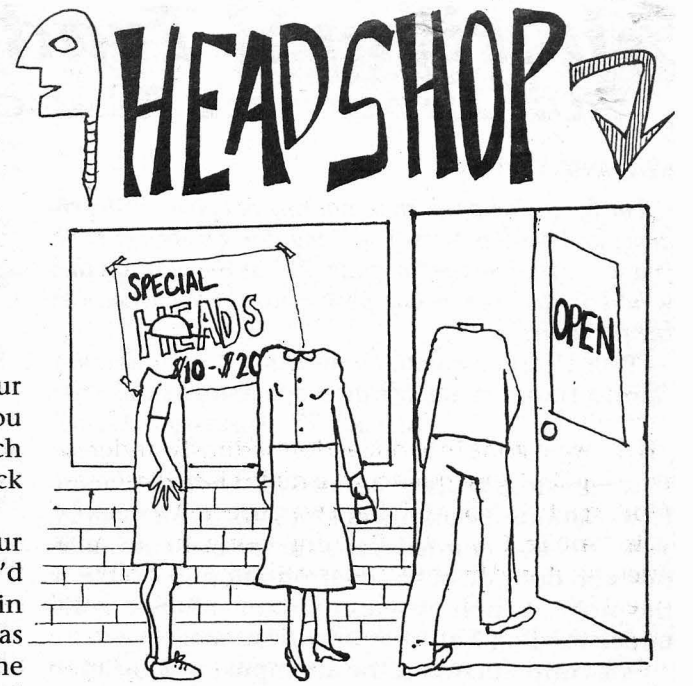 HEADSHOP
SPECIAL
HEADS
$10-$20
OPEN
ur
ou
ch
ck
ur
'd
in
as
he